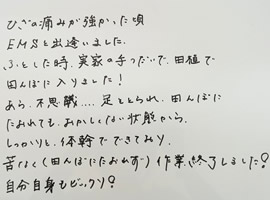 ひざの痛みが強かった頃
EMSと出逢いました。
ふとした時、実家の手つだいで、田植で
田んぼに入りました!
あら、不思議....足とられ、田んぼに
たおれても、おかしくない状態から、
しっかりと、体幹でできており、
苦なく(田んぼにたおれず)作業、終了しました?
自分自身もビックリ?